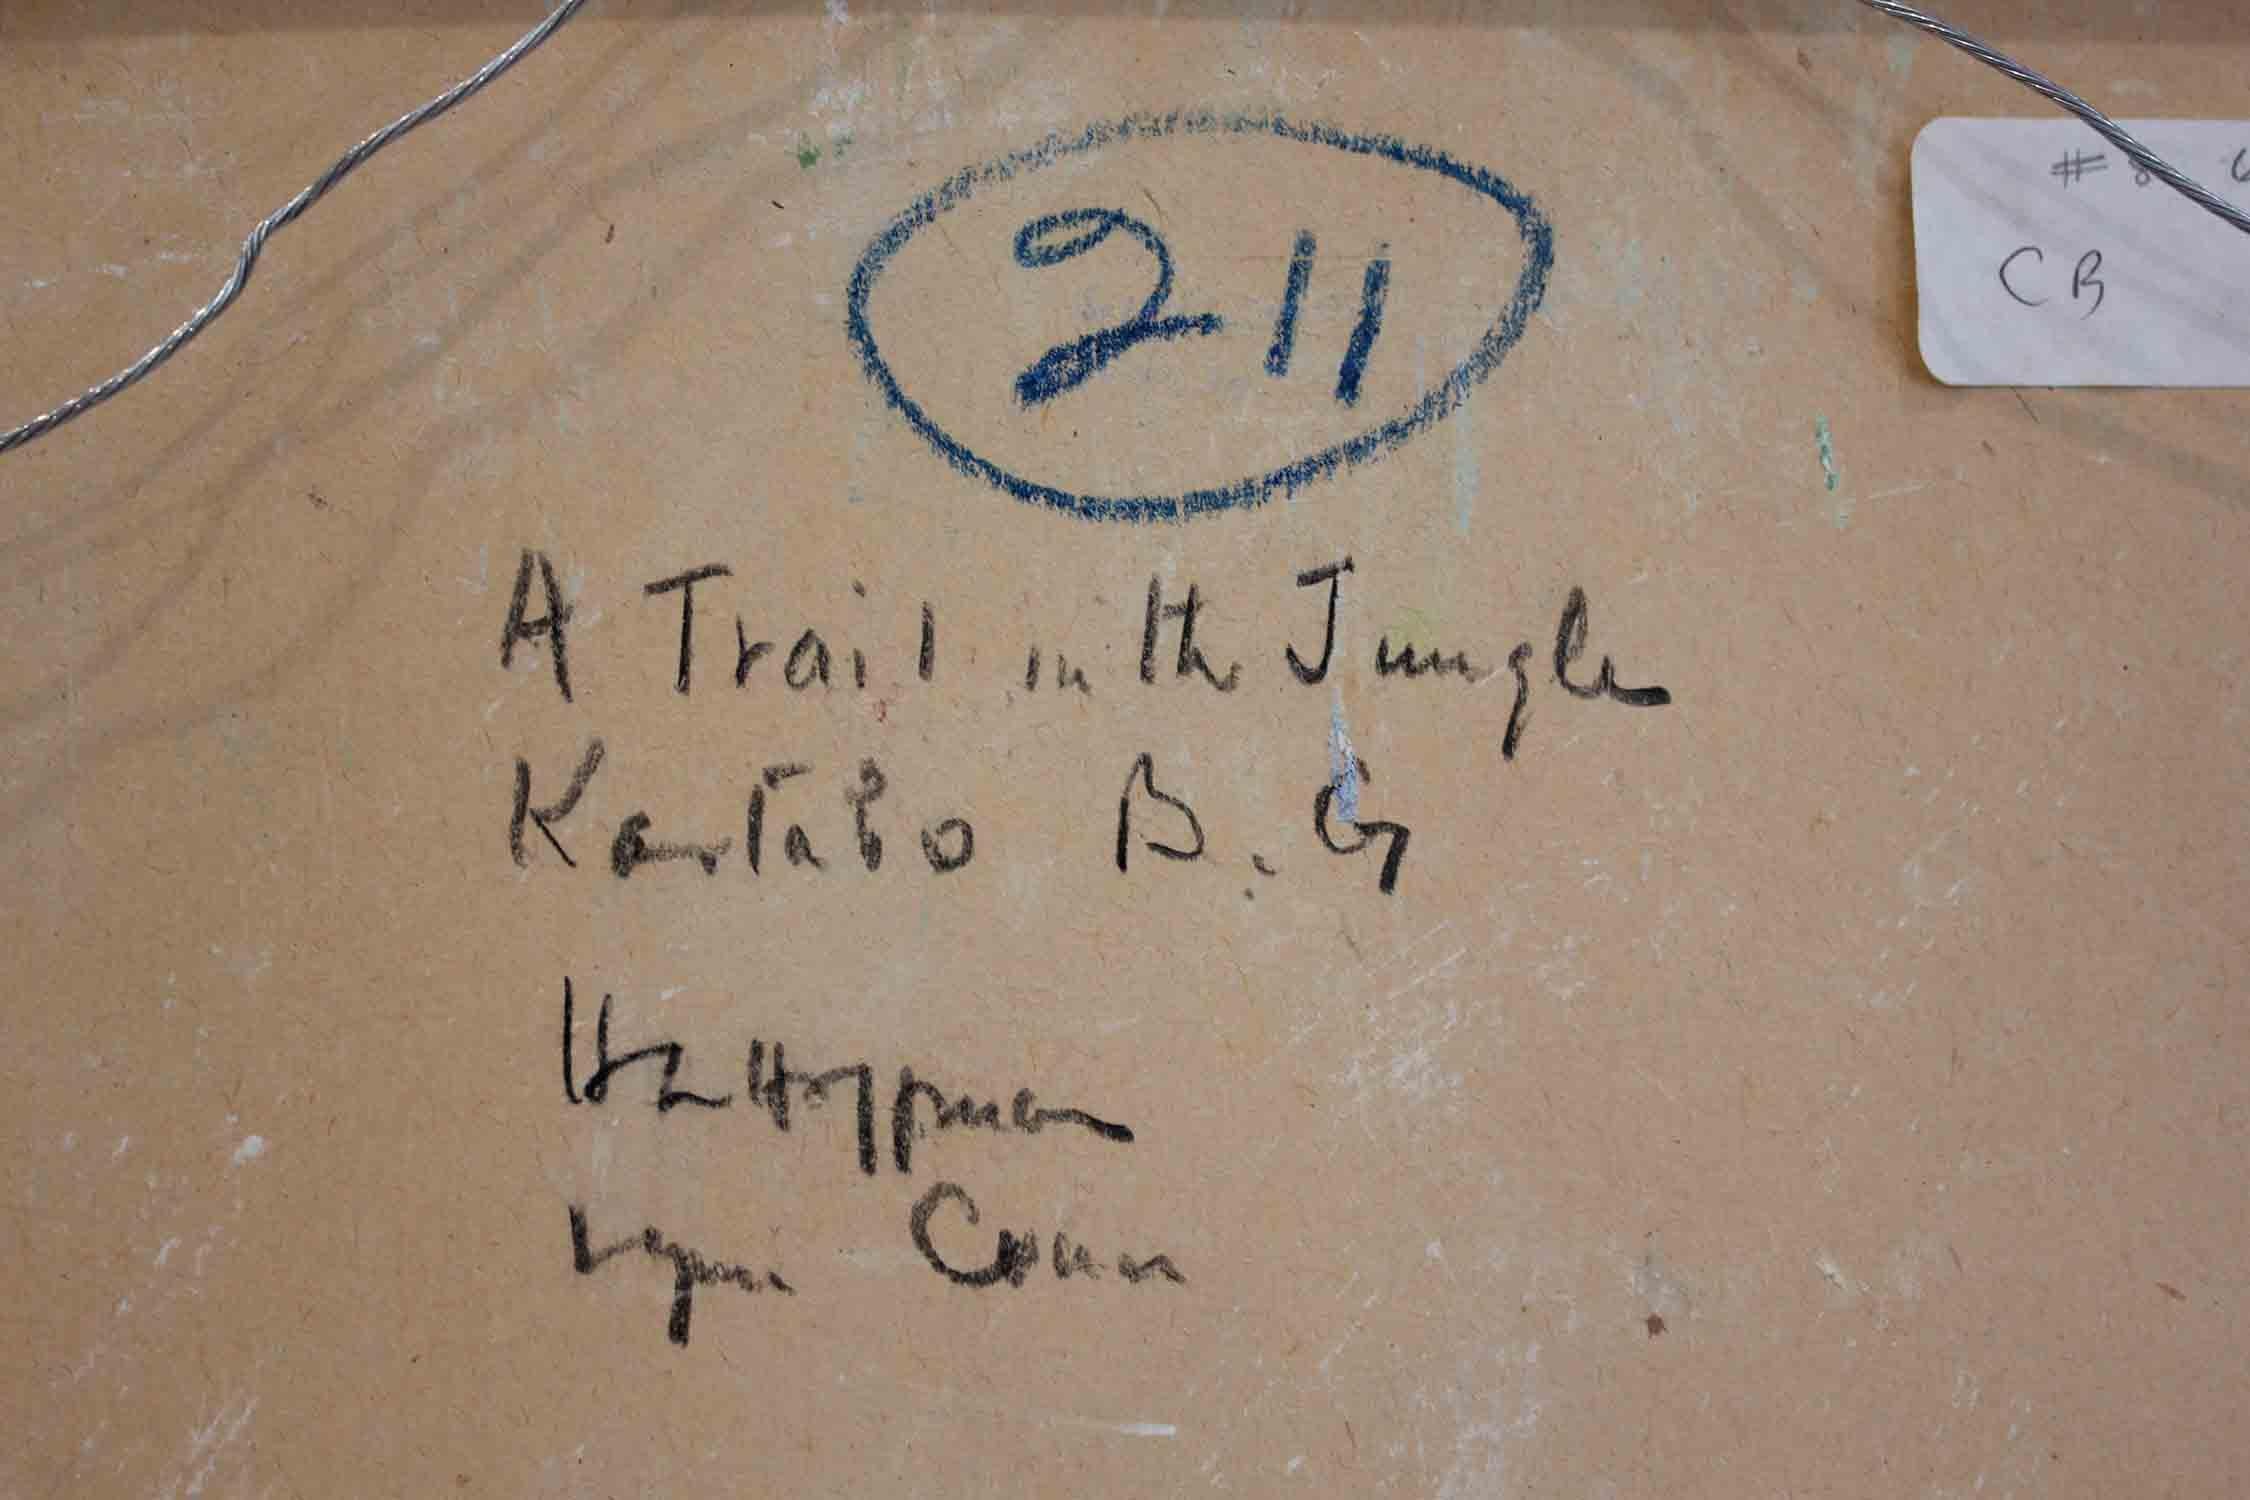 211
# 8 6
CB
A Trail in the Jungle
Kartabo B.G
HL Hoffman
Lyme Conn